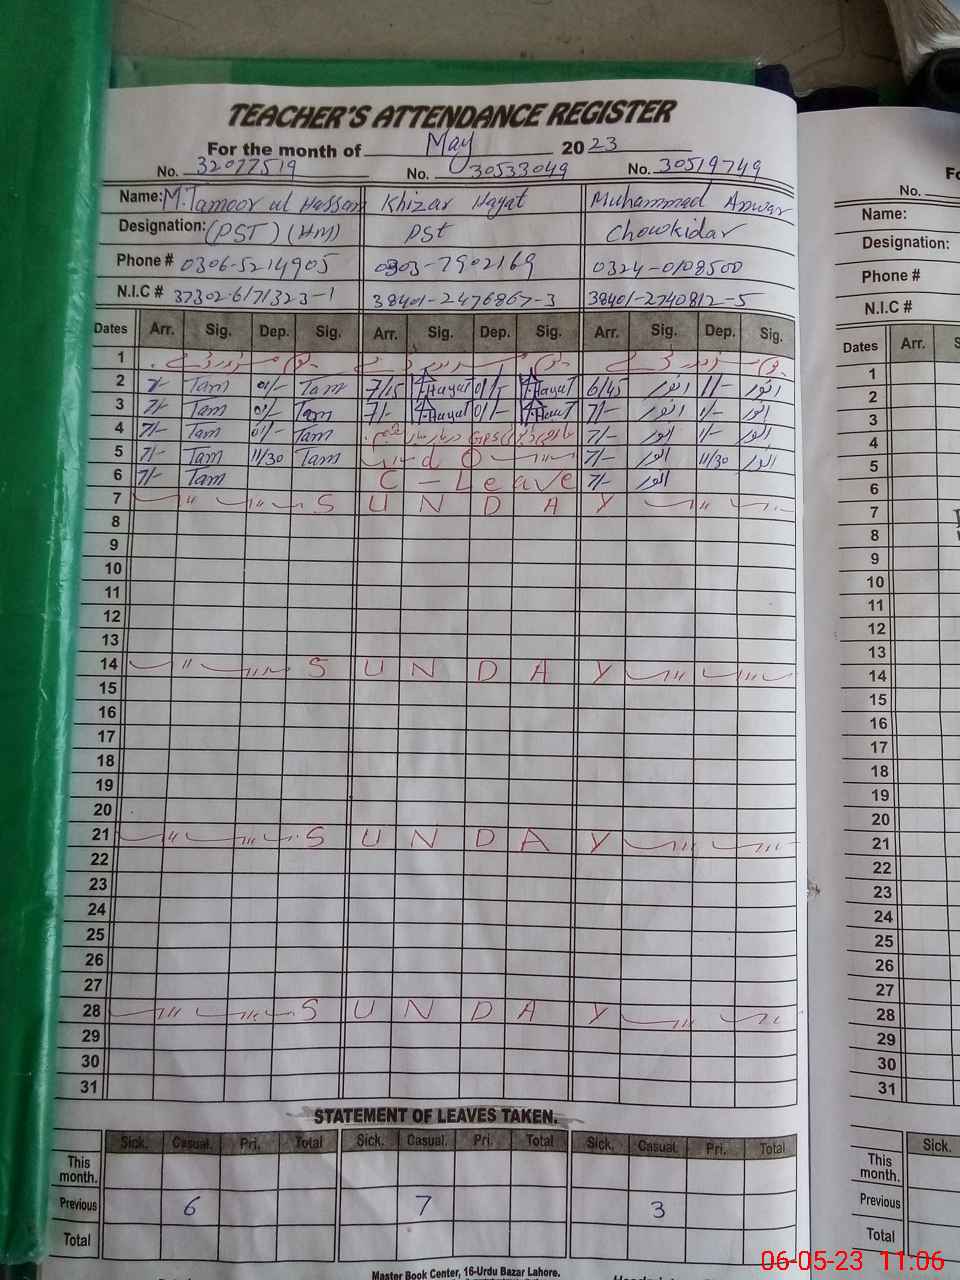 TEACHER'S ATTENDANCE REGISTER
For the month of May 2023
No. 32077519 No. 30533049 No. 30519749
Name: M.Tamoor ul Hassan Khizar Hayat Muhammad Anwar
Designation: (PST) (HM) PSt Chowkidar
Phone # 0306-5214905 0303-7902169 0324-0108500
N.I.C # 37302-6171323-1 38401-2476867-3 38401-2740812-5
Dates Arr. Sig. Dep. Sig. Arr. Sig. Dep. Sig. Arr. Sig. Dep. Sig.
1
2 7/- Tam 01/- Tam 7/15 Hayat Hayat 6/45 انور 1/- انور
3 7/- Tam 01/- Tam 7/- Hayat 01/- Hayat 7/- انور 1/- انور
4 7/- Tam 01/- Tam GPS 7/- انور 1/- انور
5 7/- Tam 11/30 Tam 7/- انور 11/30 انور
6 7/- Tam C - Leave 7/- انور
7 SUNDAY
8
9
10
11
12
13
14 SUNDAY
15
16
17
18
19
20
21 SUNDAY
22
23
24
25
26
27
28 SUNDAY
29
30
31
STATEMENT OF LEAVES TAKEN.
Sick. Casual. Pri. Total Sick. Casual. Pri. Total Sick. Casual. Pri. Total
This month.
Previous 6 7 3
Total
Master Book Center, 16-Urdu Bazar Lahore.
No.
Name:
Designation:
Phone #
N.I.C #
Dates Arr.
1
2
3
4
5
6
7
8
9
10
11
12
13
14
15
16
17
18
19
20
21
22
23
24
25
26
27
28
29
30
31
Sick.
This month.
Previous
Total
06-05-23 11:06